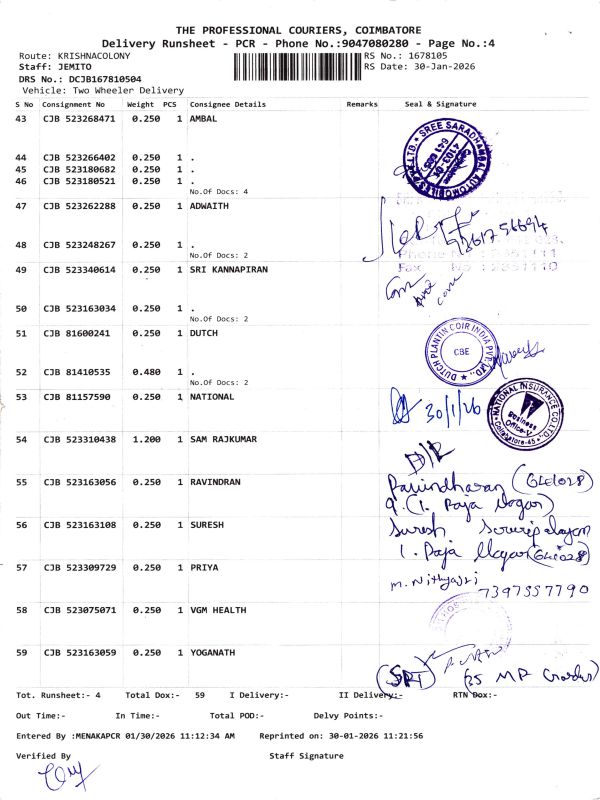 THE PROFESSIONAL COURIERS, COIMBATORE
Delivery Runsheet - PCR - Phone No.:9047080280 - Page No.:4
Route: KRISHNACOLONY RS No.: 1678105
Staff: JEMITO RS Date: 30-Jan-2026
DRS No.: DCJB167810504
Vehicle: Two Wheeler Delivery
S No Consignment No Weight PCS Consignee Details Remarks Seal & Signature
43 CJB 523268471 0.250 1 AMBAL
SREE SARADHAMBAL AUTOMOBILES
44 CJB 523266402 0.250 1 .
45 CJB 523180682 0.250 1 .
46 CJB 523180521 0.250 1 .
No.Of Docs: 4
47 CJB 523262288 0.250 1 ADWAITH
48 CJB 523248267 0.250 1 .
No.Of Docs: 2
49 CJB 523340614 0.250 1 SRI KANNAPIRAN
50 CJB 523163034 0.250 1 .
No.Of Docs: 2
51 CJB 81600241 0.250 1 DUTCH
DUTCH PLANTIN COIR INDIA PVT LTD.,
CBE
52 CJB 81410535 0.480 1 .
No.Of Docs: 2
53 CJB 81157590 0.250 1 NATIONAL
30/1/26
NATIONAL INSURANCE CO LTD.
Business
Office-V
Coimbatore-45
54 CJB 523310438 1.200 1 SAM RAJKUMAR
D/R
55 CJB 523163056 0.250 1 RAVINDRAN
56 CJB 523163108 0.250 1 SURESH
Suresh
57 CJB 523309729 0.250 1 PRIYA
7397557790
58 CJB 523075071 0.250 1 VGM HEALTH
59 CJB 523163059 0.250 1 YOGANATH
Tot. Runsheet:- 4 Total Dox:- 59 I Delivery:- II Delivery:- RTN Dox:-
Out Time:- In Time:- Total POD:- Delvy Points:-
Entered By :MENAKAPCR 01/30/2026 11:12:34 AM Reprinted on: 30-01-2026 11:21:56
Verified By Staff Signature